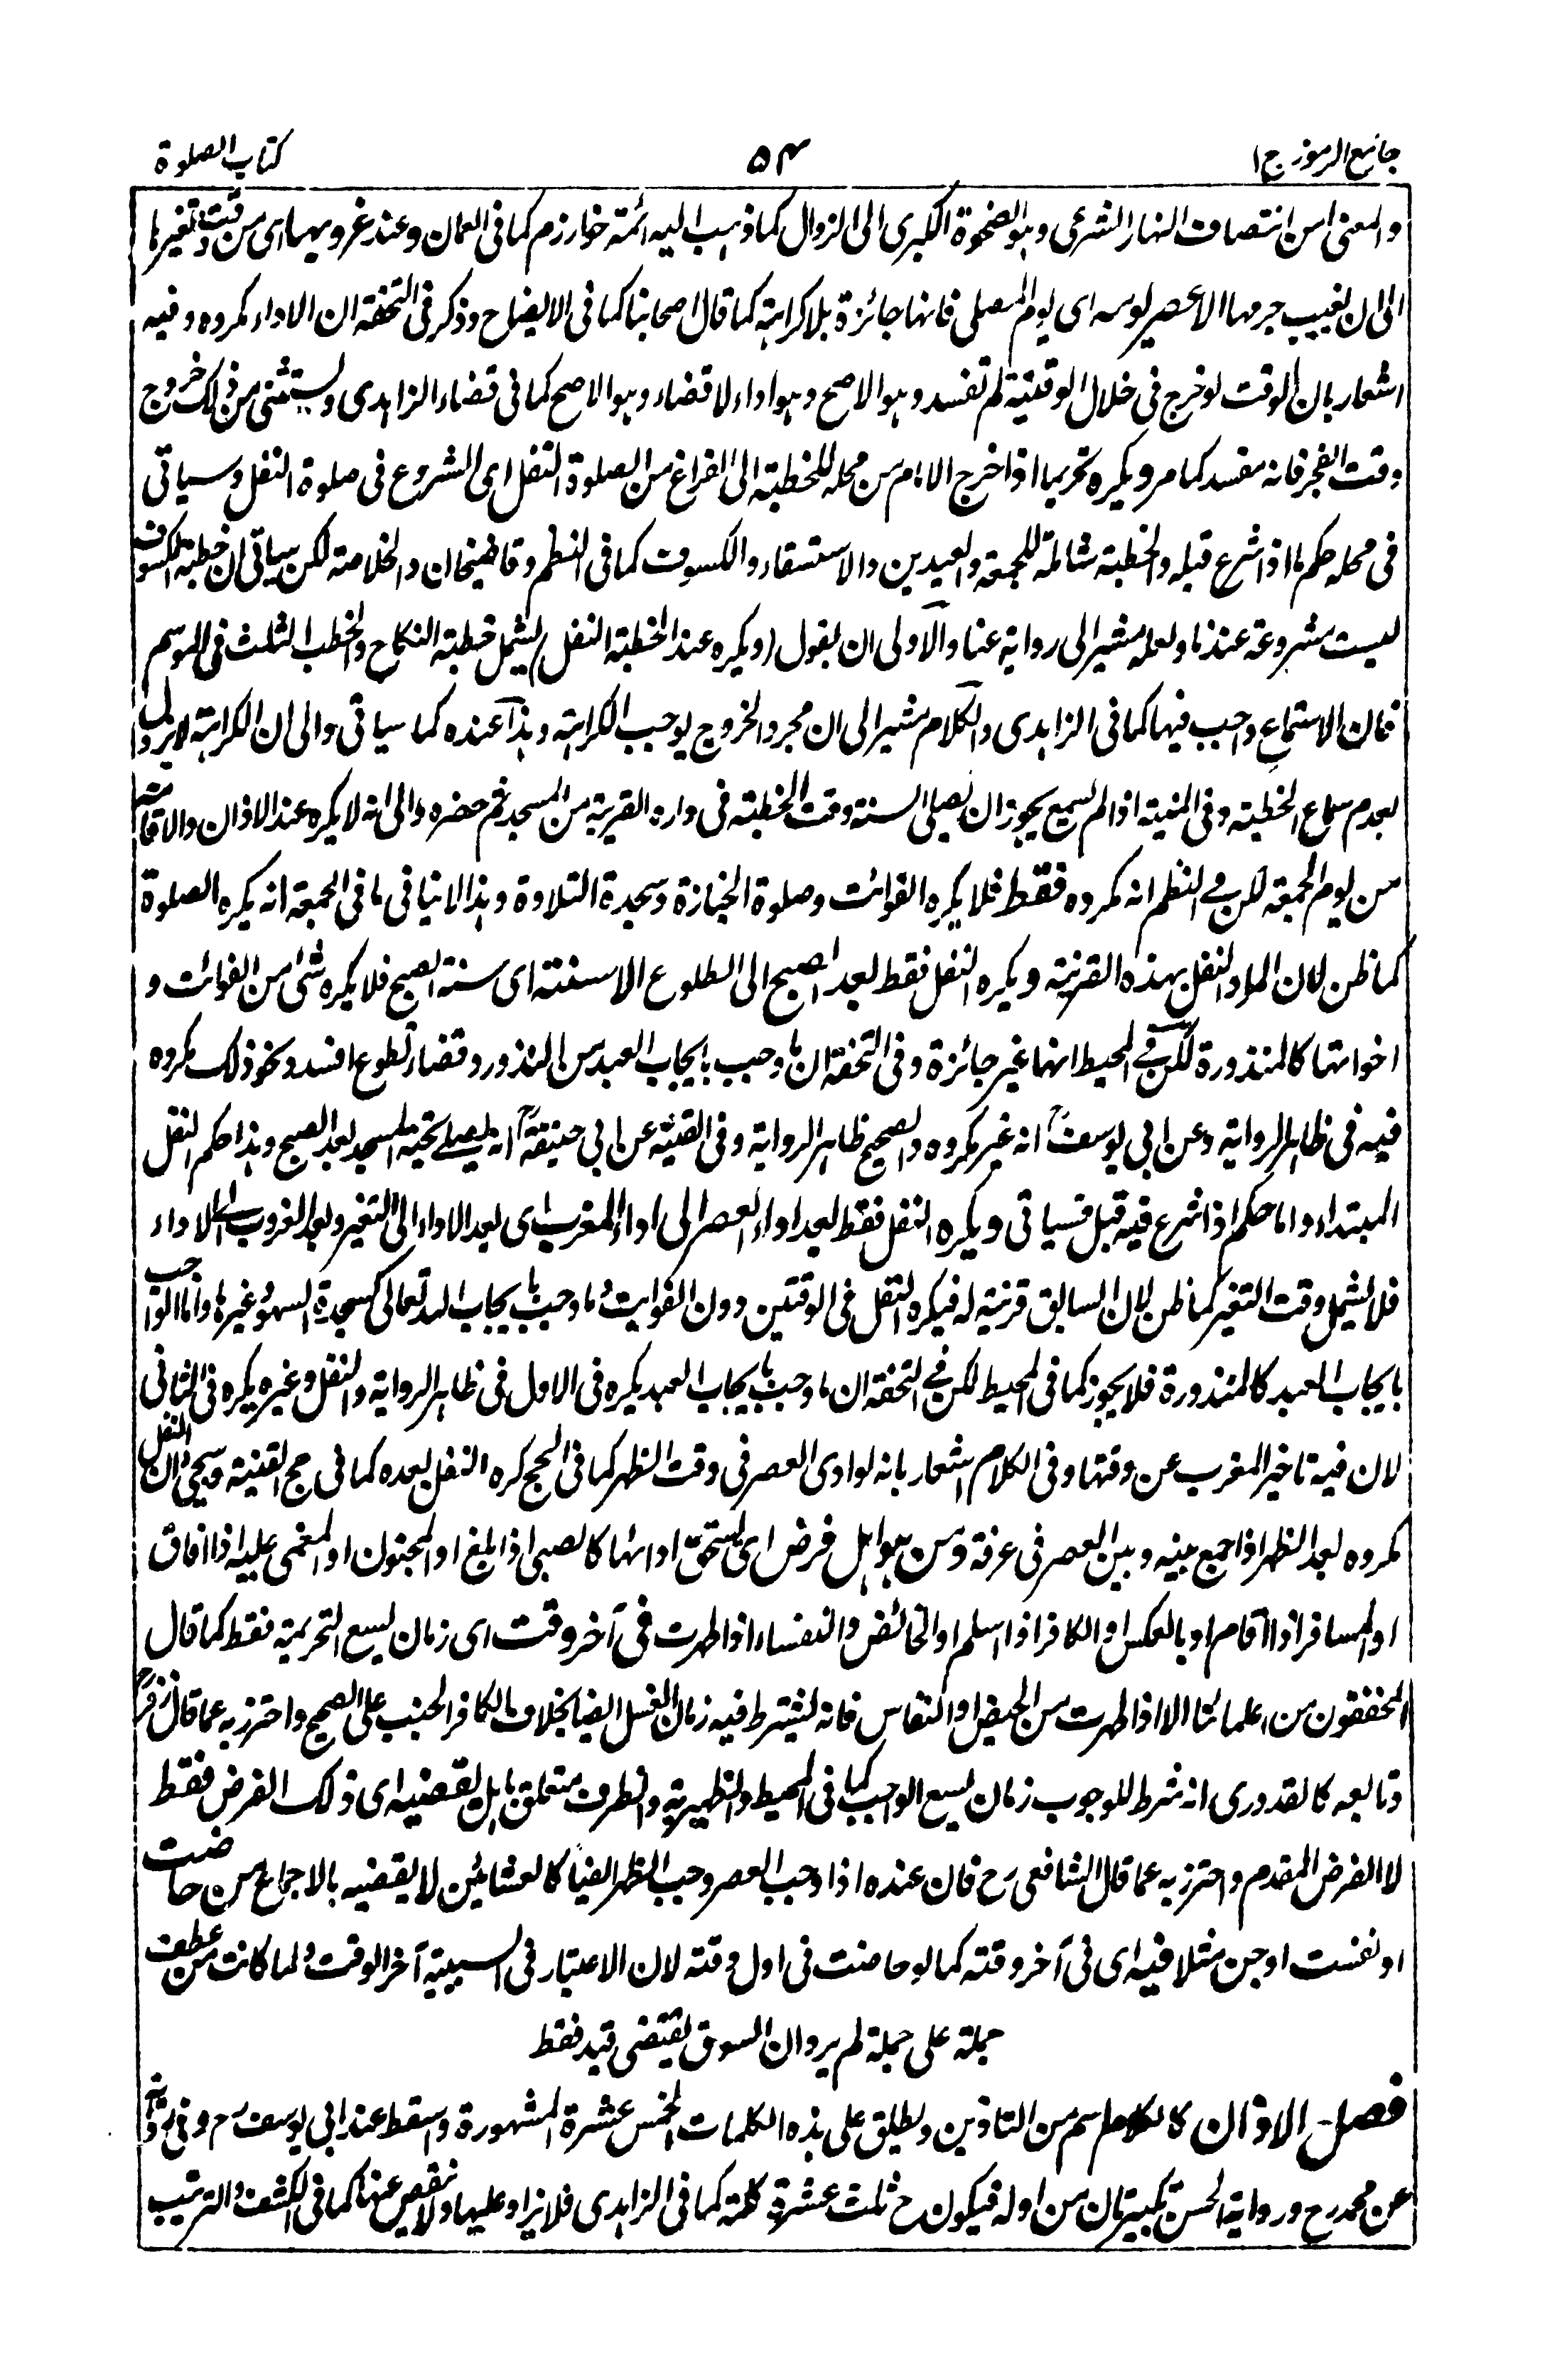 جامع الرموز ج ١
۵۴
كتاب الصلوة
والمعنى من انتصاف النهار الشرعى وهو الضحوة الكبرى الى الزوال كما ذهب اليه ائمة خوارزم كما فى العمان وعند غروبها اى من وقت تغيرها
الى ان يغيب جرمها الا عصر يومه اى يوم المصلى فانها جائزة بلا كراهة كما قال اصحابنا كما فى الايضاح وذكر فى التحفة ان الاداء مكروه وفيه
اشعار بان الوقت لو خرج فى خلال الوقتية لم تفسد وهو الاصح وهو اداء لا قضاء وهو الاصح كما فى قضاء الزاهدى ويستثنى من ذلك خروج
وقت الفجر فانه مفسد كما مر ويكره تحريما اذا خرج الامام من محله للخطبة الى الفراغ من الصلوة النفل اى الشروع فى صلوة النفل وسياتى
فى محله حكم ما اذا شرع قبله والخطبة شاملة للجمعة والعيدين والاستسقاء والكسوف كما فى النظم وقاضيخان والخلاصة لكن سياتى ان خطبة الكسوف
ليست مشروعة عندنا ولعله مشير الى رواية عنا والاولى ان يقول (ويكره عند الخطبة النفل) ليشمل خطبة النكاح والخطب الثلث فى الموسم
فان الاستماع واجب فيها كما فى الزاهدى والكلام مشير الى ان مجرد الخروج يوجب الكراهة وهذا عنده كما سياتى والى ان الكراهة لا يزول
بعدم سماع الخطبة وفى المنية اذا لم يسمع يجوز ان يصلى السنة وقت الخطبة فى داره القريبة من المسجد ثم حضره والى انه لا يكره عند الاذان والاقامة
من يوم الجمعة لكن فى النظم انه مكروه فقط فلا يكره الفوائت وصلوة الجنازة وسجدة التلاوة وهذا لا ينافى ما فى الجمعة انه يكره الصلوة
كما ظن لان المراد النفل بهذه القرينة ويكره النفل فقط بعد الصبح الى الطلوع الا سنته اى سنة الصبح فلا يكره شئ من الفوائت و
اخواتها كالمنذورة لكن فى المحيط انها غير جائزة وفى التحفة ان ما وجب بايجاب العبد من النذور وقضاء تطوع افسد ونحو ذلك مكروه
فيه فى ظاهر الرواية وعن ابى يوسف انه غير مكروه والصحيح ظاهر الرواية وفى القنية عن ابى حنيفة انه يصلى تحية المسجد بعد الصبح وهذا حكم النفل
المبتداء واما حكم اذا شرع فيه قبل فسياتى ويكره النفل فقط بعد اداء العصر الى اداء المغرب اى بعد الاداء الى التغير وبعد الغروب الى الاداء
فلا يشمل وقت التغير كما ظن لان السابق قرينة له فيكره النفل فى الوقتين دون الفوايت وما وجب بايجاب الله تعالى كسجدة السهو وغيرها واما الواجب
بايجاب العبد كالمنذورة فلا يجوز كما فى المحيط لكن فى التحفة ان ما وجب بايجاب العبد يكره فى الاول فى ظاهر الرواية والنفل وغيره يكره فى الثانى
لان فيه تاخير المغرب عن وقتها وفى الكلام اشعار بانه لو ادى العصر فى وقت الظهر كما فى الحج كره النفل بعده كما فى حج القنية ويجئ ان النفل
مكروه بعد الظهر اذا جمع بينه وبين العصر فى عرفة ومن هو اهل فرض اى يستحق ادائها كالصبى اذا بلغ او المجنون او المغمى عليه اذا افاق
او المسافر اذا اقام او بالعكس او الكافر اذا اسلم او الحائض والنفساء اذا طهرت فى آخر وقت اى زمان يسع التحريمة فقط كما قال
المحققون من علمائنا الا اذا طهرت من الحيض او النفاس فانه يشترط فيه زمان الغسل ايضا بخلاف الكافر الجنب على الصحيح واحترز به عما قال زفر
وتابعه كالقدورى انه شرط للوجوب زمان يسع الواجب كما فى المحيط والظهيرية والظرف متعلق باهل يقضيه اى ذلك الفرض فقط
لا الفرض المقدم واحترز به عما قال الشافعى رح فان عنده اذا وجب العصر وجب الظهر ايضا كالعشائين لا يقضيه بالاجماع من حاضت
او نفست او جن مثلا فيه اى فى آخر وقته كما لو حاضت فى اول وقته لان الاعتبار فى السببية آخر الوقت ولما كانت من عطف
جملة على جملة لم يرد ان السوق يقتضى قيد فقط
فصل الاذان كالكلام اسم من التاذين ويطلق على هذه الكلمات الخمس عشرة المشهورة وسقط عند ابى يوسف رح وفى رواية
عن محمد رح ورواية الحسن تكبيرتان من اوله فيكون ح ثلث عشرة كلمة كما فى الزاهدى فلا يزاد عليها ولا ينقص عنها كما فى الكشف والترتيب